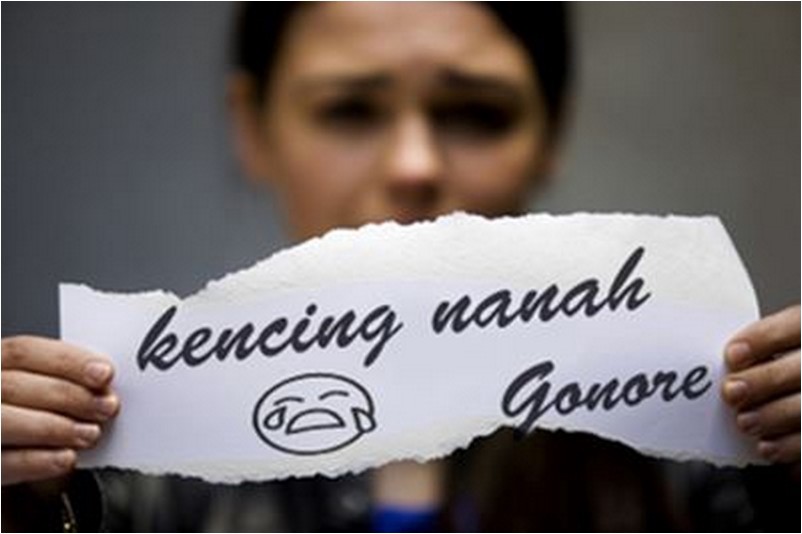 kencing nanah
Gonore